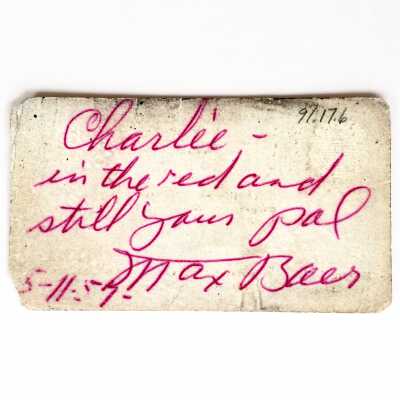 97.17.6
Charlie -
in the red and
still your pal
Max Baer
5-11-59-